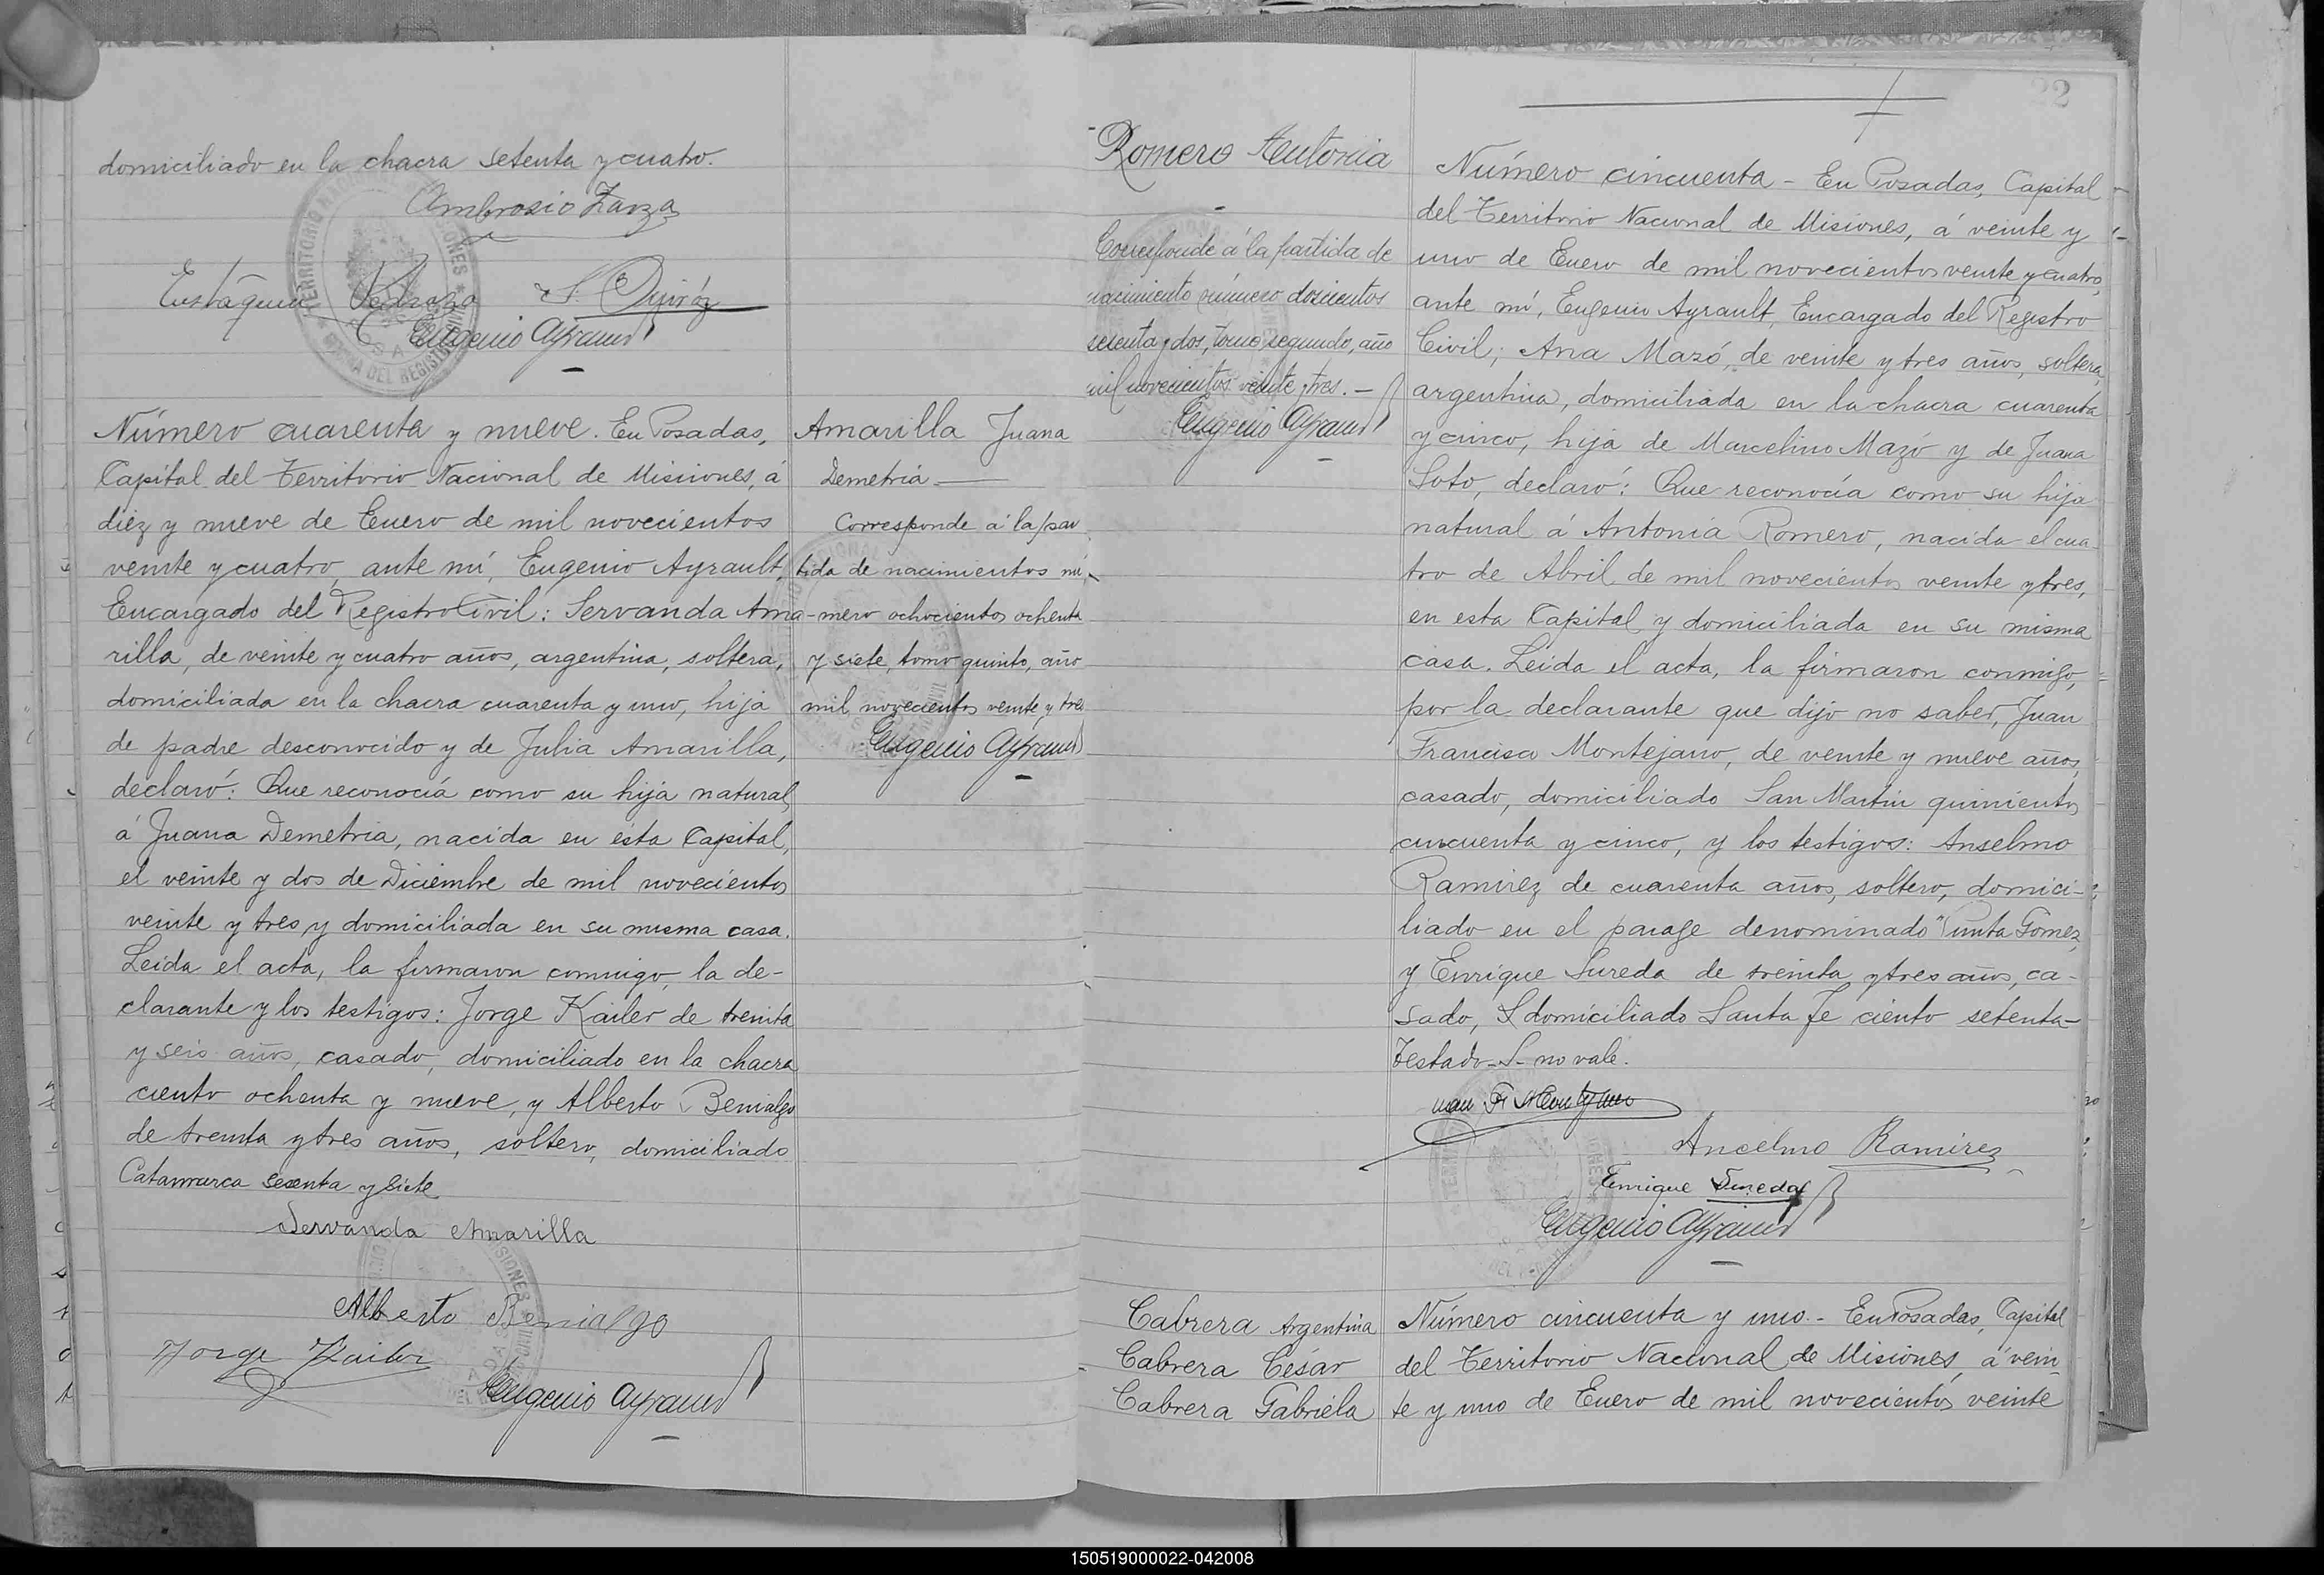 domiciliado en la chacra setenta y cuatro.
Ambrosio Zarza
Eustaquio Pedrozo S. Quiróz
Eugenio Ayrault
Número cuarenta y nueve. En Posadas,
Capital del Territorio Nacional de Misiones, á
diéz y nueve de Enero de mil novecientos
veinte y cuatro, ante mí, Eugenio Ayrault,
Encargado del Registro Civil: Servanda Ama-
rilla, de veinte y cuatro años, argentina, soltera,
domiciliada en la chacra cuarenta y uno, hija
de padre desconocido y de Julia Amarilla,
declaró: Que reconocía como su hija natural,
á Juana Demetria, nacida en ésta Capital,
el veinte y dos de Diciembre de mil novecientos
veinte y tres y domiciliada en su misma casa.
Leida el acta, la firmaron conmigo, la de-
clarante y los testigos: Jorge Kailer de treinta
y seis años, casado, domiciliado en la chacra
ciento ochenta y nueve, y Alberto Benialgo
de treinta y tres años, soltero, domiciliado
Catamarca sesenta y siete
Servanda Amarilla
Alberto Benialgo
Jorge Kailer
Eugenio Ayrault
Amarilla Juana
Demetria
Corresponde á la par
tida de nacimientos nú-
mero ochocientos ochenta
y siete, tomo quinto, año
mil novecientos veinte y tres
Eugenio Ayrault
22
Romero Antonia
Corresponde á la partida de
nacimiento número doscientos
sesenta y dos, tomo segundo, año
mil novecientos veinte y tres. -
Eugenio Ayrault
Número cincuenta - En Posadas, Capital
del Territorio Nacional de Misiones, á veinte y
uno de Enero de mil novecientos veinte y cuatro,
ante mí, Eugenio Ayrault, Encargado del Registro
Civil; Ana Mazó, de veinte y tres años, soltera,
argentina, domiciliada en la chacra cuarenta
y cinco, hija de Marcelino Mazó y de Juana
Soto, declaró: Que reconocía como su hija
natural á Antonia Romero, nacida el cua-
tro de Abril de mil novecientos veinte y tres,
en esta Capital y domiciliada en su misma
casa. Leida el acta, la firmaron conmigo,
por la declarante que dijo no saber, Juan
Francisco Montejano, de veinte y nueve años,
casado, domiciliado San Martín quinientos
cincuenta y cinco, y los testigos: Anselmo
Ramirez de cuarenta años, soltero, domici-
liado en el parage denominado "Punta Gomez,
y Enrique Sureda de treinta y tres años, ca-
sado, S domiciliado Santa Fe ciento setenta-
Testado-S-no vale.
Juan F. Montejano
Anselmo Ramirez
Enrique Sureda
Eugenio Ayrault
Cabrera Argentina
Cabrera César
Cabrera Gabriela
Número cincuenta y uno.- En Posadas, Capital
del Territorio Nacional de Misiones, á vein-
te y uno de Enero de mil novecientos veinte
150519000022-042008